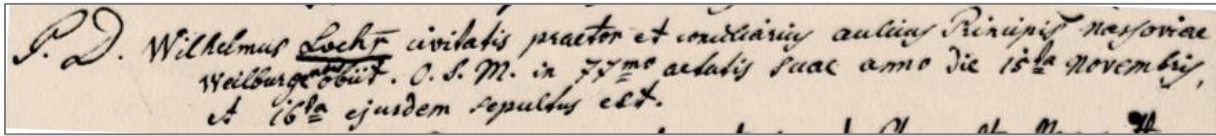 P. D. Wilhelmus Lochr civitatis praetor et consiliarius aulicus Principis Nassoviae
Weilburg obiit. O. S. M. in 77mo aetatis suae anno die 15ta Novembris,
et 16ta ejusdem sepultus est.